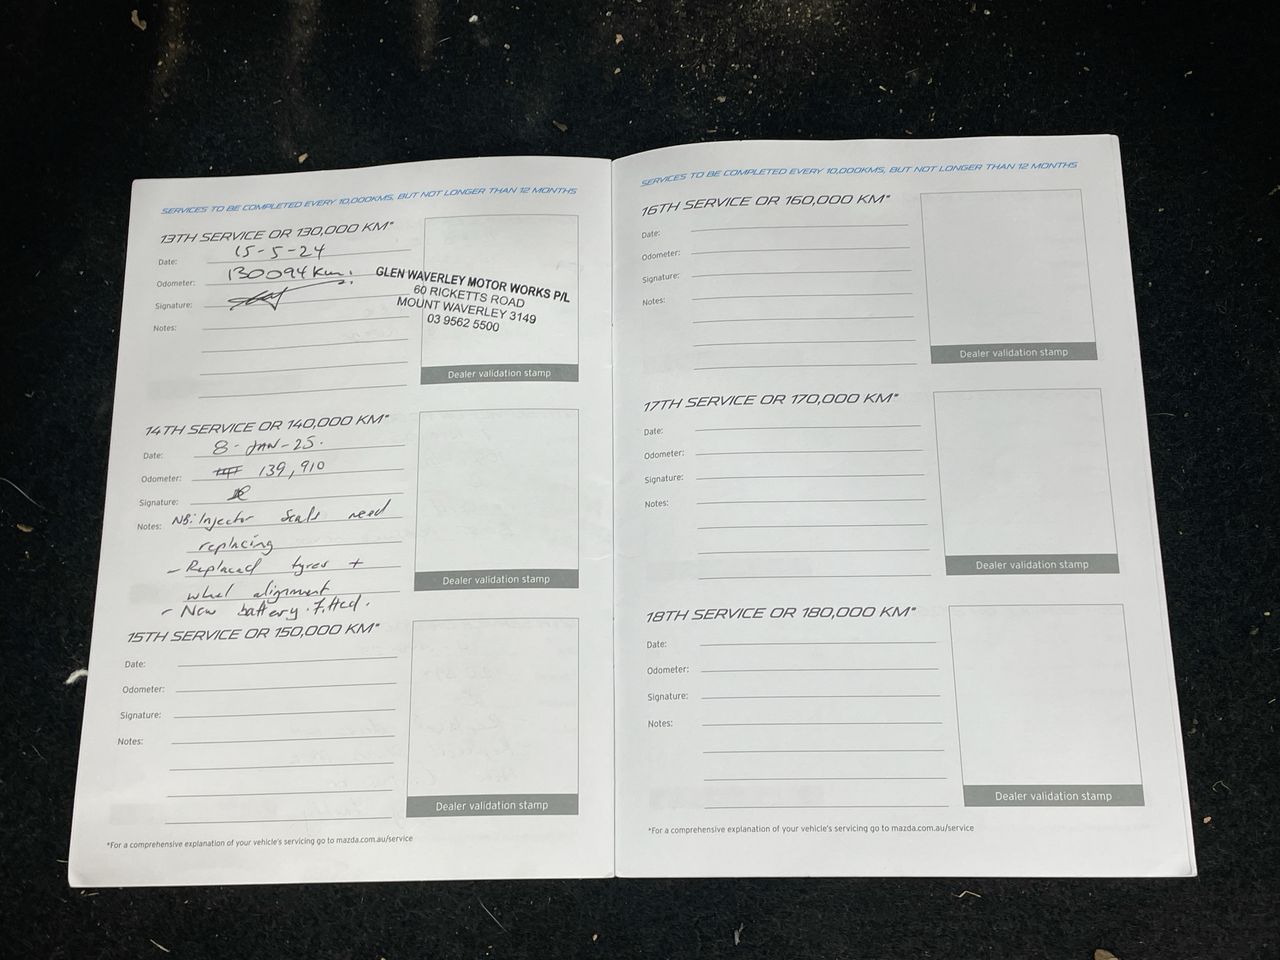 SERVICES TO BE COMPLETED EVERY 10,000KMS, BUT NOT LONGER THAN 12 MONTHS
13TH SERVICE OR 130,000 KM*
Date: 15-5-24
Odometer: 130094 km.
Signature:
Notes:
GLEN WAVERLEY MOTOR WORKS P/L
60 RICKETTS ROAD
MOUNT WAVERLEY 3149
03 9562 5500
Dealer validation stamp
14TH SERVICE OR 140,000 KM*
Date: 8-JAN-25.
Odometer: 139,910
Signature:
Notes: NB: Injector Seals need
replacing
- Replaced tyres +
wheel alignment
- New battery fitted.
Dealer validation stamp
15TH SERVICE OR 150,000 KM*
Date:
Odometer:
Signature:
Notes:
Dealer validation stamp
*For a comprehensive explanation of your vehicle's servicing go to mazda.com.au/service
SERVICES TO BE COMPLETED EVERY 10,000KMS, BUT NOT LONGER THAN 12 MONTHS
16TH SERVICE OR 160,000 KM*
Date:
Odometer:
Signature:
Notes:
Dealer validation stamp
17TH SERVICE OR 170,000 KM*
Date:
Odometer:
Signature:
Notes:
Dealer validation stamp
18TH SERVICE OR 180,000 KM*
Date:
Odometer:
Signature:
Notes:
Dealer validation stamp
*For a comprehensive explanation of your vehicle's servicing go to mazda.com.au/service